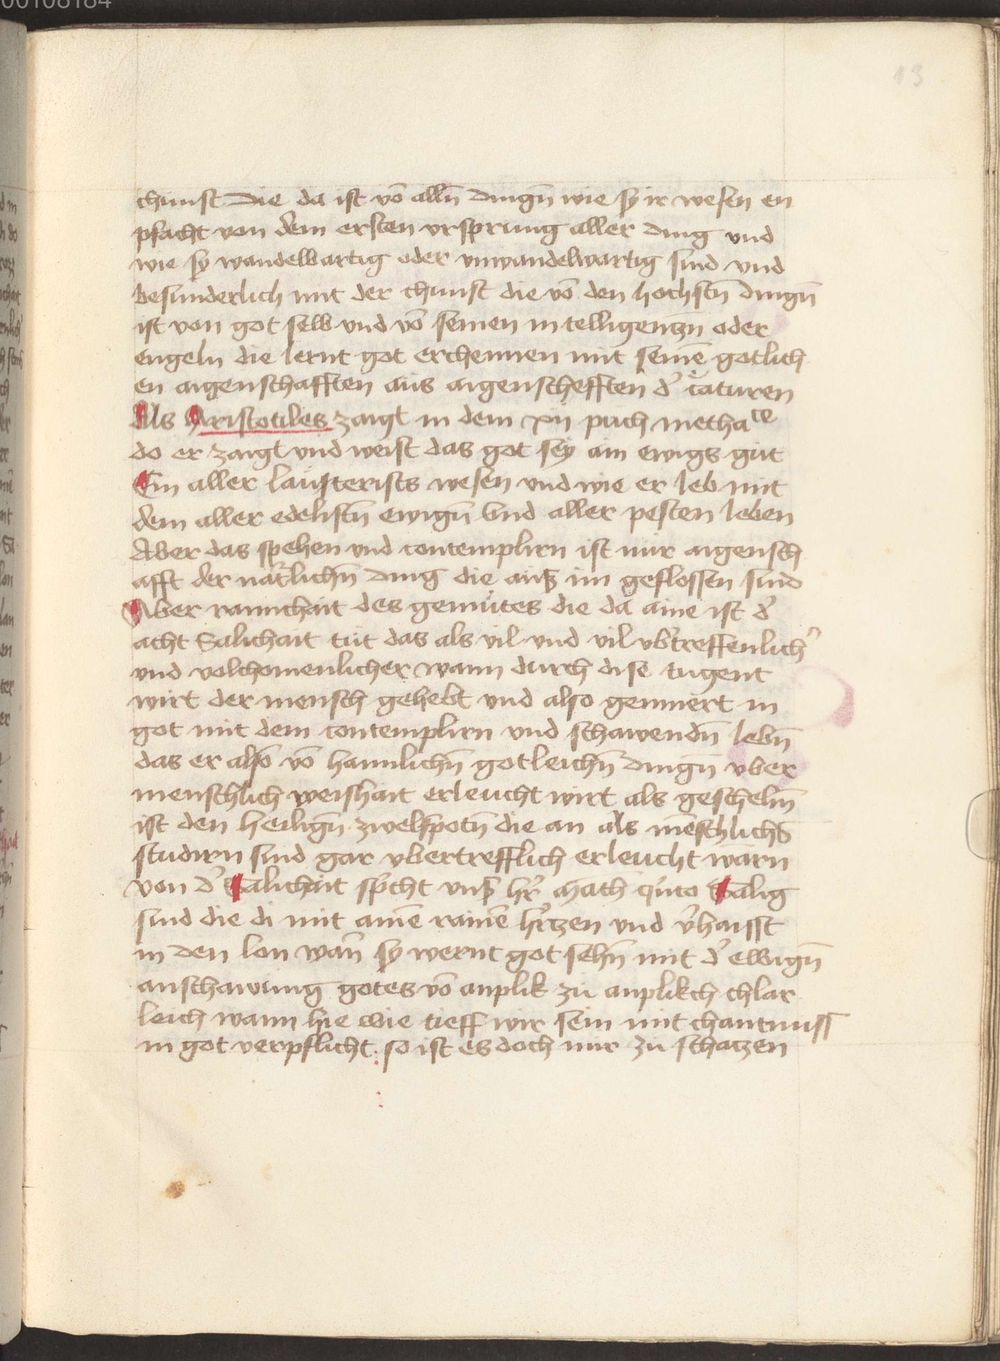 00108184
13
chunst Die da ist vō allñ dingñ wie sy ir wesen en
pfacht von dem ersten vrsprung aller ding vnd
wie sy wandelbartig oder vnwandelwartig sind vnd
besunderlich mit der chunst die vō den hochstñ dingñ
ist von got selb vnd vō seinen intelligentzn oder
engeln die lernt got erchennen mit seinē gotlich
en aigenschafften aus aigenschefften d' c̃aturen
Als Aristotiles zaigt in dem xii puch metha ce
do er zaigt vnd weist das got sey ain ewigs gut
Ein aller lauterists wesen vnd wie er leb mit
dem aller edelistñ ewigñ vnd aller pesten leben
Aber das spehen vnd contemplirn ist nur aigensch
afft der natrlichñ ding die ausz im geflossen sind
Aber rainichait des gemütes die da aine ist d'
acht Salichait tüt das als vil vnd vil vbertreffenlich'
vnd volchomenlicher wann durch dise tugent
wirt der mensch gehebt vnd also geiniert in
got mit dem contemplirn vnd schawendñ lebñ
das er also vō haimlichñ gotleichñ dingñ vber
menschlich weishait erleucht wirt als geschehñ
ist den heiligñ zwelfpotñ die an als mēschlichs
studirn sind gar vbertrefflich erleucht warn
von d' Salichait sp'cht vnß hr̃ Math q'nto Sälig
sind die di mit ainē rainē hr̃tzen vnd v'haisst
in den lon wañ sy wernt got sehñ mit d' ewigñ
anschawung gotes vō anplik zu anplikch chlar
leich wann hie wie tieff wir sein mit chantnuss
in got verpflicht so ist es doch nur zu schatzen